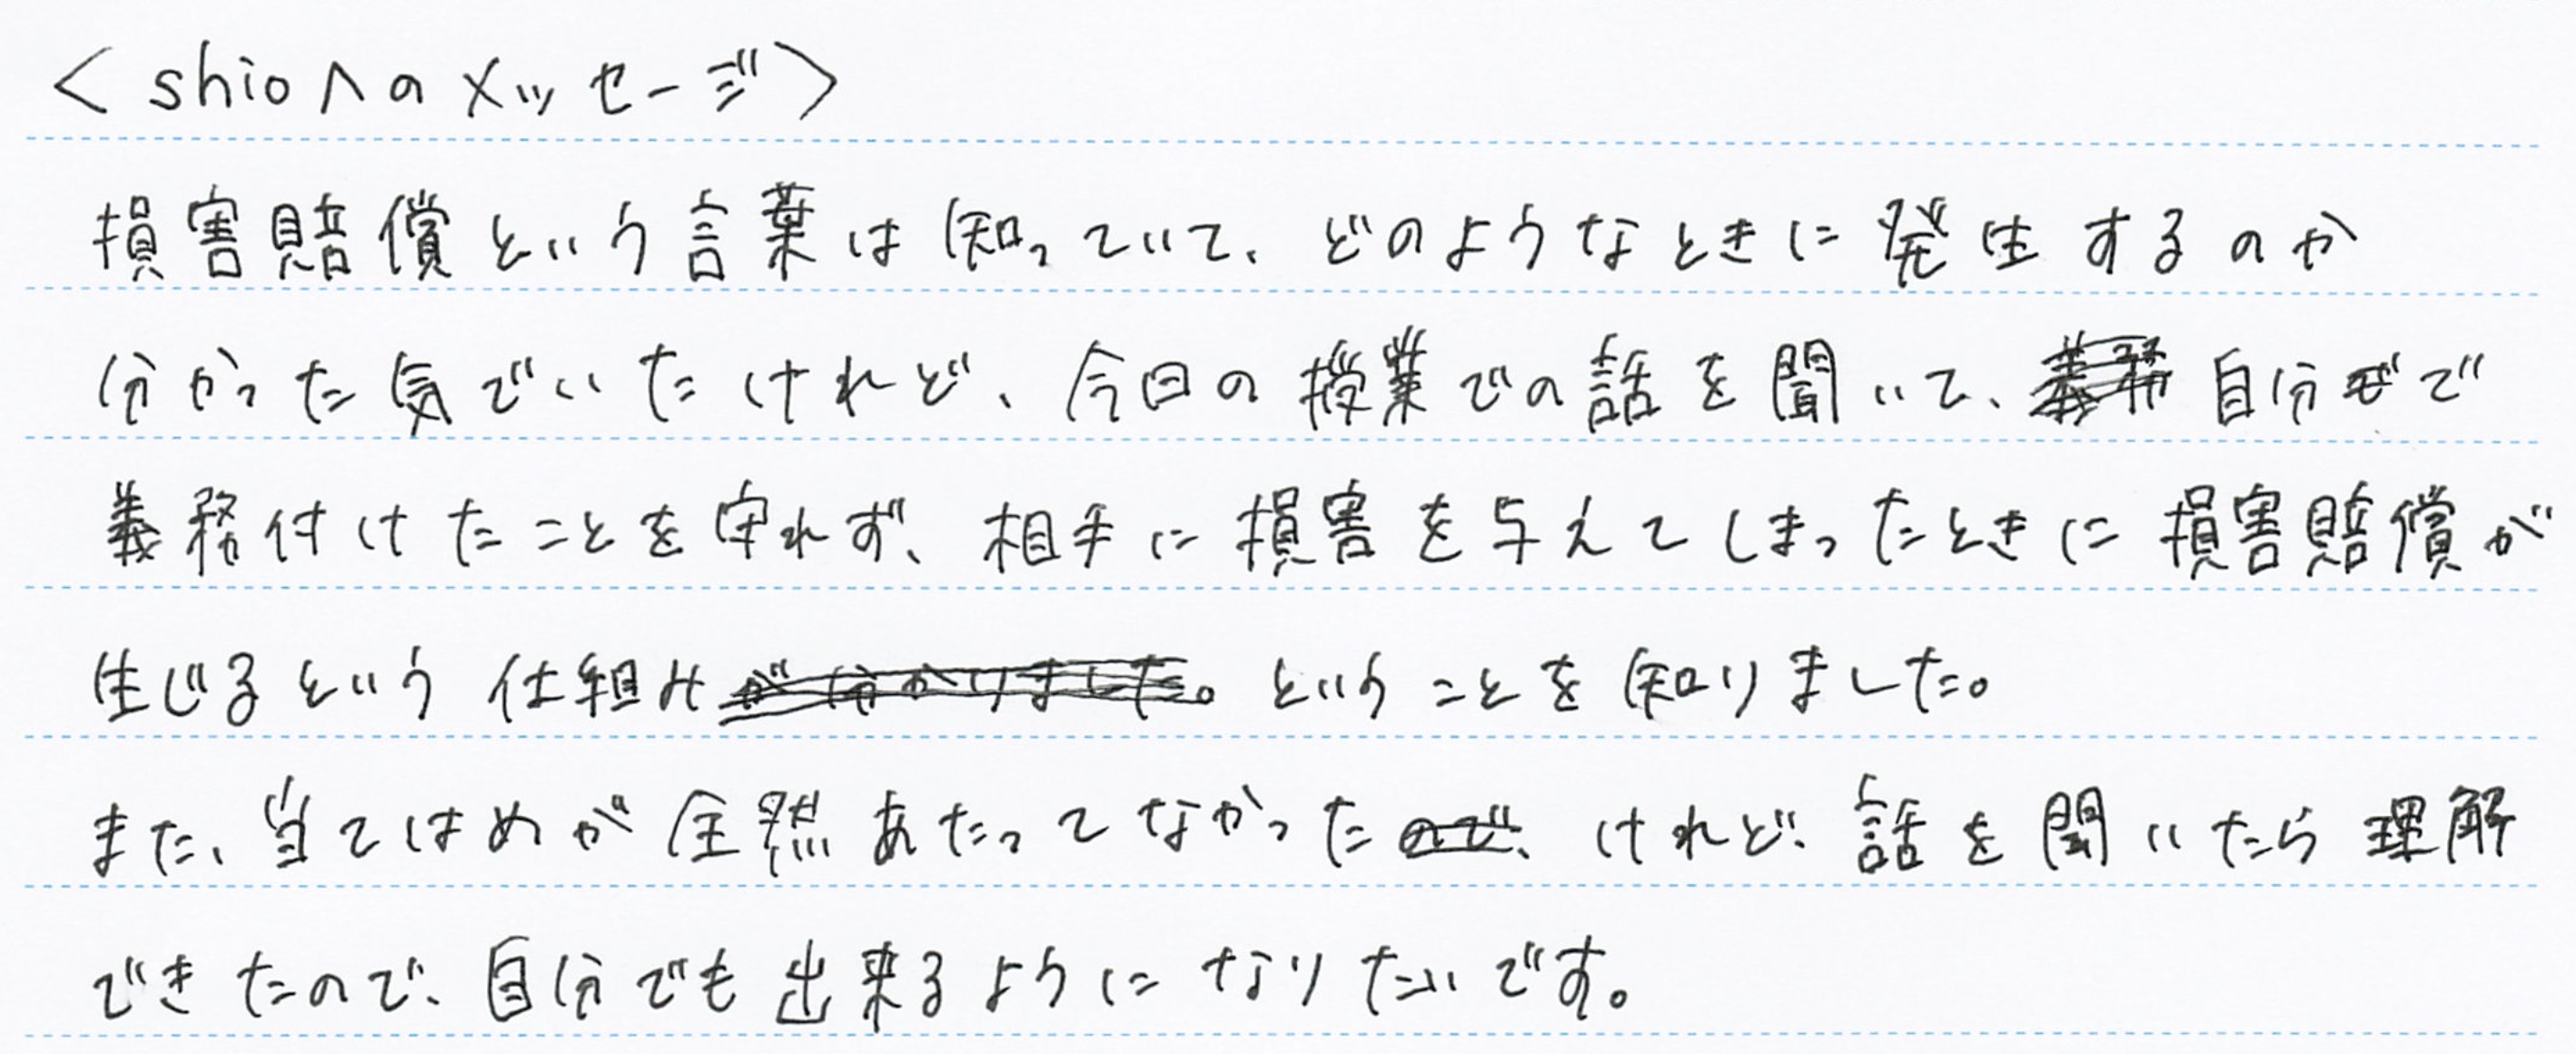 <shioへのメッセージ>
損害賠償という言葉は知っていて、どのようなときに発生するのか
分かった気でいたけれど、今日の授業での話を聞いて、自分で
義務付けたことを守れず、相手に損害を与えてしまったときに損害賠償が
生じるという仕組みということを知りました。
また、当てはめが全然あたってなかったけれど、話を聞いたら理解
できたので、自分でも出来るようになりたいです。